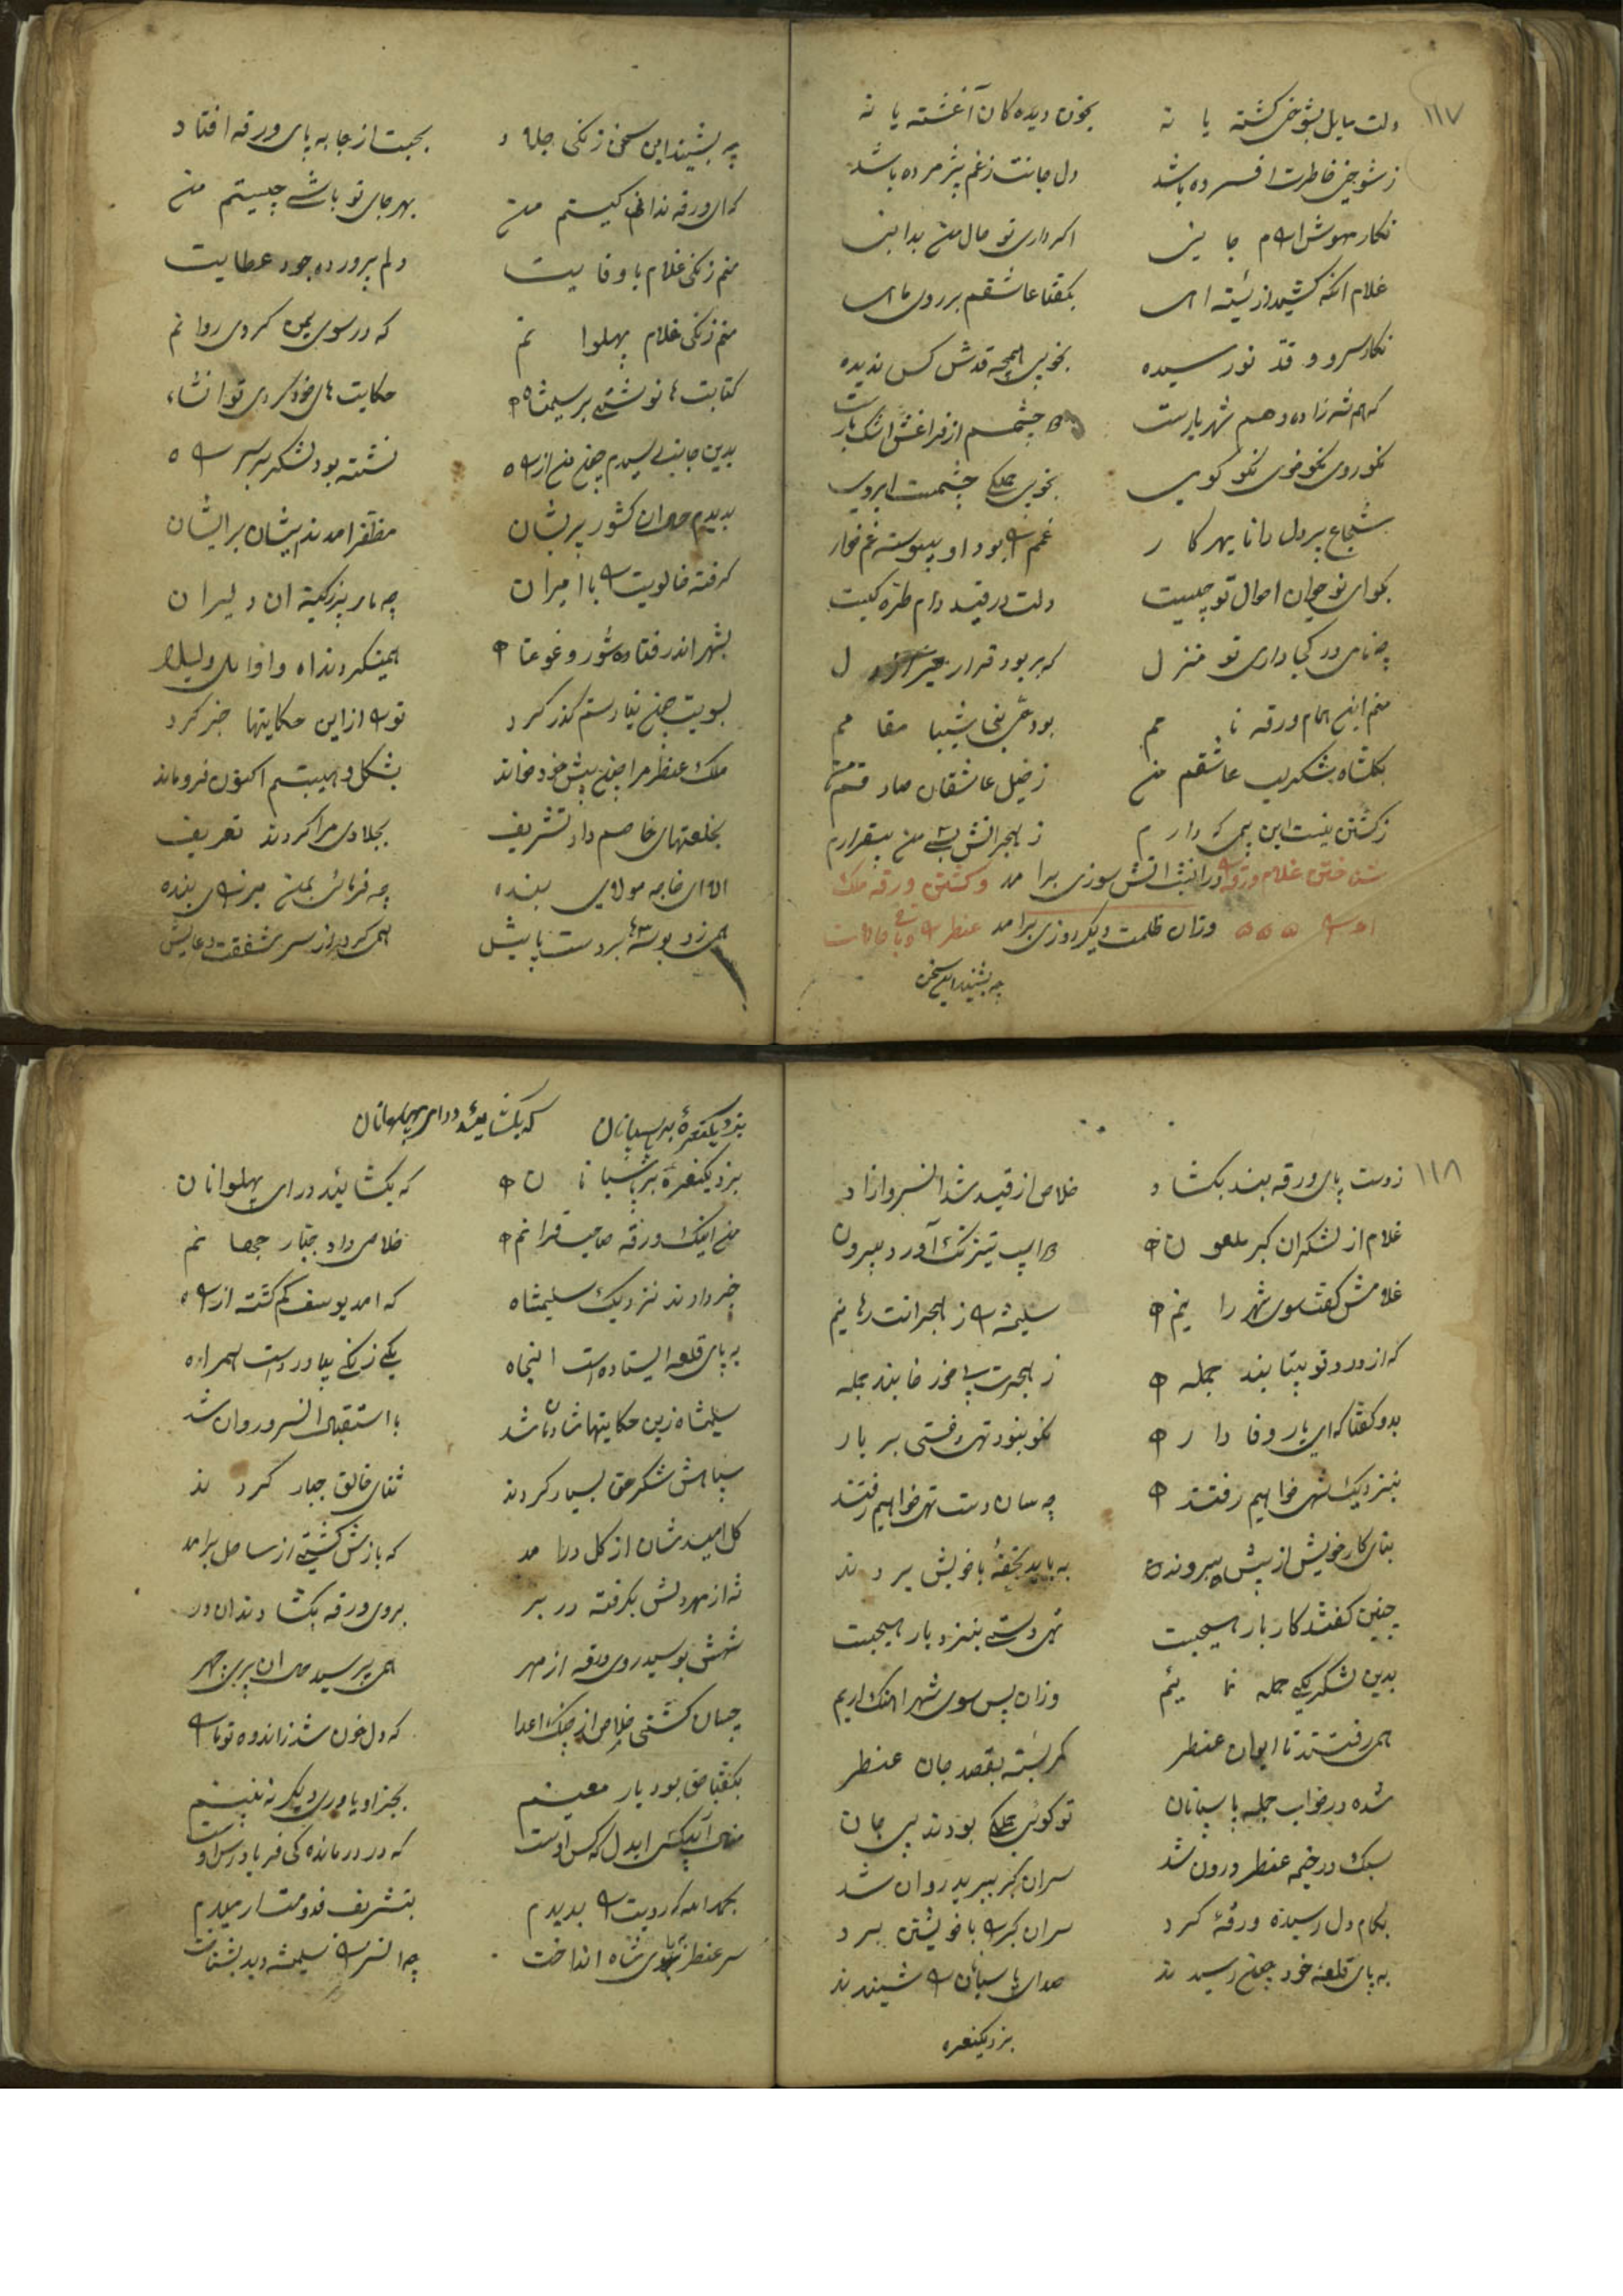 ۱۱۷
دلت مایل بشوخی کشته یا نه بخون دیده کان آغشته یا نه
ز شوخی خاطرت افسرده باشد دل و جانت ز غم پژمرده باشد
اکر داری تو حال من بدانی
غلام بکفتا عاشقم بر روی ماهی
نکار سرو و قد نو رسیده بخوبی همچه قدش کس ندیده
که هم شه زاده و هم شهریارست دو چشمم از فراغش اشک بارست
نکو روی نکو خوی نکو کوی بخوبی چشمست ابروی
شجاع پردل دانا بهر کار غم بود او پیوسته غم خوار
بکو ای نو جوان احوال تو چیست دلت در قید دام طره کیست
چه نامی در کجا داری تو منزل که بربود قرار دل
منم ابن همام ورقه نامم بود بنی شیبا مقامم
بکلشاه شکر لب عاشقم من ز خیل عاشقان صادقم من
ز کشتن نیست این بیمی که دارم ز هجرانش بسی من بیقرارم
شناختن غلام ورقه در انیث آتش سوزی برامد و کشتن ورقه ملک
وزان ظلمت دیکر روزی برامد عنطر
چه بشنید این سخن
چه بشنید این سخن زنکی جلاد بجست از جا به پای ورقه افتاد
که ای ورقه ندانی کیستم من بهر جای تو باشی چیستم من
منم زنکی غلام با وفایت دلم پرورده جود عطایت
منم زنکی غلام پهلوانم که در سوی یمن کردی روانم
کتابت ها نوشتی بر سلیمشاه حکایت های خود کردی تو انشاء
بدین جانب رسیدم چون من از راه نشسته بود لشکر بر سر راه
بدیدم حال آن کشور پریشان مظفر امدند پیشان بر ایشان
کرفته خالویت با امیران چه مار پرزکینه آن دلیران
بشهر اندر فتاده شور و غوغا همیکردند اه وا ویلا
بسویت چون نیارستم کذر کرد توان از این حکایتها خبر کرد
ملک عنطر مرا چون پیش خود خواند بشکل و هیبتم اکنون فرو ماند
بخلعتهای خاصم داد تشریف بجلادی مرا کردند تعریف
الا ای خواجه مولای بنده چه فرمائی بمن میرزای بنده
همی زد بوسه ها بر دست پایش همی کرد از سر شفقت دعایش
۱۱۸
ز دست پای ورقه بند بکشاد خلاص از قید شد آن سرو آزاد
غلام از لشکران کبر ملعون دو اسب تیز تک آورد بیرون
غلامش کفت سوی شهر رانیم سلیمشه را ز هجرانت رهانیم
که از درد تو بیتابند جمله ز هجرت بی خور خابند جمله
بدو کفتا که ای یار وفادار نکو نبود تهی رفتی بر یار
بنزدیک شهی خواهیم رفتن چه سان دست تهی خواهیم رفتن
بنای کار خویش از پیش بردند بباید تحفه با خویش بردند
چنین کفتند کار بار هیچیست تهی دستی بنزد یار هیچیست
بدین لشکر یکی حمله نمائیم وزان پس سوی شهر آهنک اریم
همی رفتند تا ایوان عنطر کمر بسته بقصد جان عنطر
شده در خواب جمله پاسبانان تو کوئی جملکی بودند بی جان
سبک در خیمه عنطر درون شد سران کبر ببرید روان شد
بکام دل رسیده ورقه کرد سران کبر را با خویشتن برد
به پای قلعه خود چون رسیدند صدای پاسبانان را شنیدند
بزد یکنعره
بزد یکنعره بر پاسبانان که بکشائید درای پهلوانان
بزد یکنعره بر پاسبانان که بکشائید درای پهلوانان
من اینک ورقه صاحبقرانم خلاصی داد جبار جهانم
خبر دادند نزدیک سلیمشاه که امد یوسف کم کشته از راه
به پای قلعه ایستاده است اینجاه یکی زنکی بیاوردست همراه
سلیمشاه زین حکایتها شادان شد با استقبال آن سرور روان شد
سپاهش شکر حق بسیار کردند ثنای خالق جبار کردند
کل امیدشان از کل درامد که بازش کشتی از ساحل برامد
شه از مهر دلش بکرفته در بر بروی ورقه بکشادند آن در
شهش بوسید روی ورقه از مهر همی پرسید حال آن پری چهر
چسان کشتی خلاص از چنک اعدا که دل خون شد ز اندوه تو ما را
بکفتا حق بود یار معینم بجز او یاوری دیکر نه بینم
که در درمانده کی فریادرس اوست
بحمدالله که رویت را بدیدم بتشریف قدومت ارمیدم
سر عنطر به پای شاه انداخت چه آن سر را سلیمشه دید بشناخت